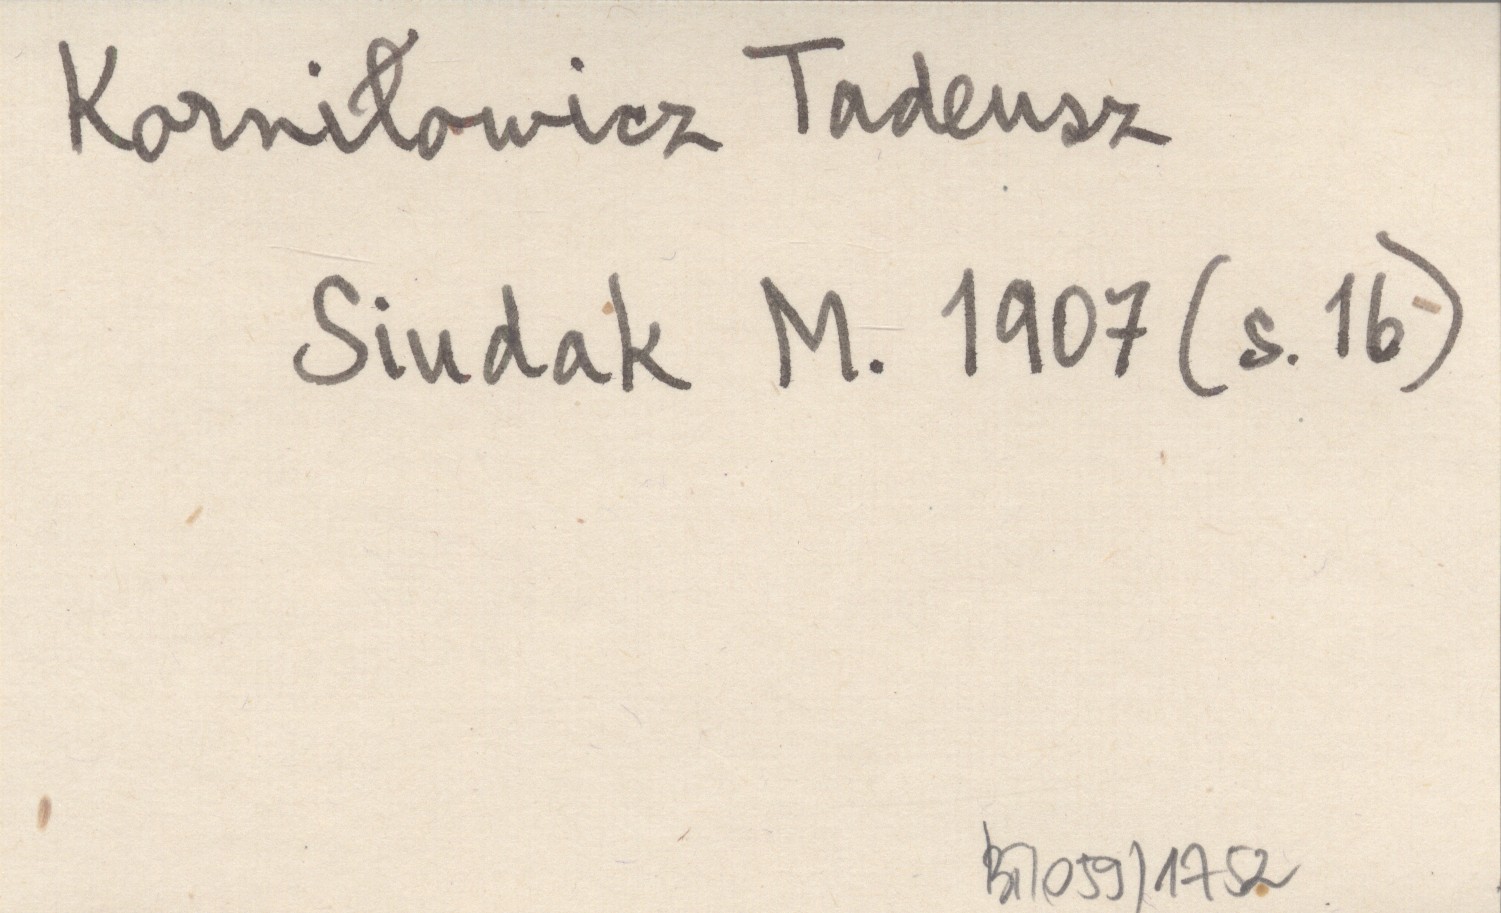 Korniłowicz Tadeusz
Siudak M. 1907 (s. 16)
059/1752